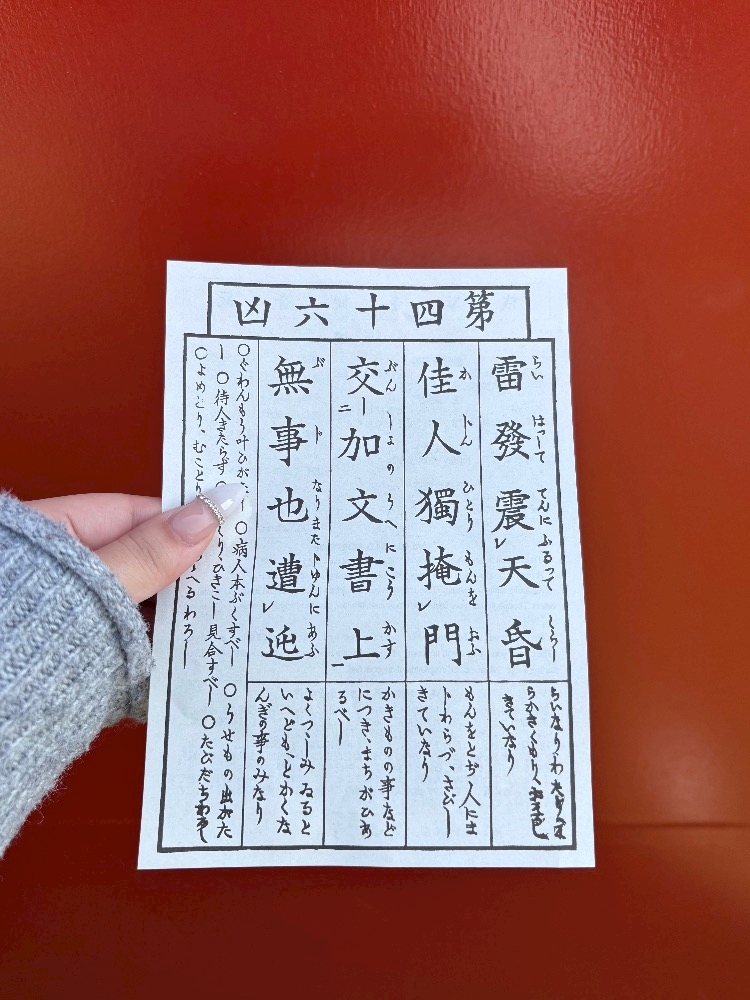 第四十六凶
雷發震レ天昏
らい はつして てんに ふるつて くらし
佳人獨掩レ門
か じん ひとり もんを おふ
もんをとぢ人にま
じわらづ、さびし
きていなり
交二加文書上一
ぶん しよ の うへ に こう かす
かきものの事など
につき、まちがひあ
るべし
無事也遭レ迍
ぶ じ なり また じゆんに あふ
よくつゝしみゐると
いへども、とかくな
んぎの事のみなり
○ぐわんもう叶ひがたし ○病人本ぶくすべし ○うせもの出がた
し ○待人きたらず ひきこし見合すべし ○たびだちわるし
○よめどり、むことり わろし